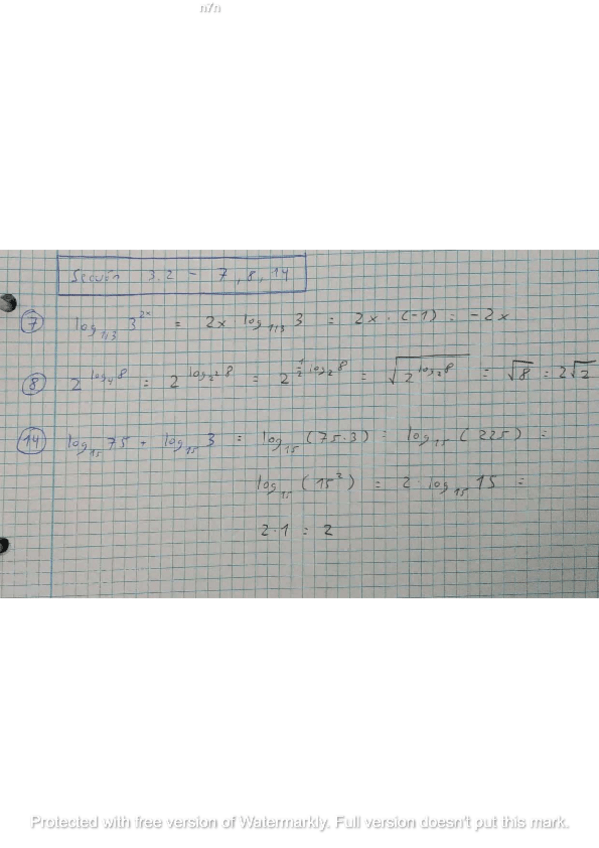 n7n
Sección 3.2 - 7, 8, 14
⑦ log₁/₃ 3²ˣ = 2x · log₁/₃ 3 = 2x · (-1) = -2x
⑧ 2^(log₄8) = 2^(log₂²8) = 2^(½ log₂8) = √(2^(log₂8)) = √8 = 2√2
⑭ log₁₅ 75 + log₁₅ 3 = log₁₅ (75·3) = log₁₅ (225) =
log₁₅ (15²) = 2 · log₁₅ 15 =
2·1 = 2
Protected with free version of Watermarkly. Full version doesn't put this mark.